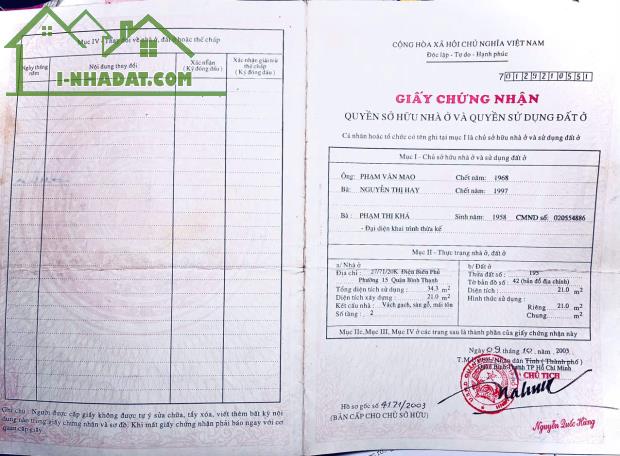 Mục IV - Thay đổi về nhà ở, đất ở hoặc thế chấp
Ngày tháng năm
Nội dung thay đổi
Xác nhận (Ký đóng dấu)
Xác nhận giải trừ thế chấp (Ký đóng dấu)
I-NHADAT.COM
Ghi chú : Người được cấp giấy không được tự ý sửa chữa, tẩy xóa, viết thêm bất kỳ nội
dung nào trong giấy chứng nhận và sơ đồ. Khi mất giấy chứng nhận phải báo ngay với cơ
quan cấp giấy.
CỘNG HÒA XÃ HỘI CHỦ NGHĨA VIỆT NAM
Độc lập - Tự do - Hạnh phúc
70129210551
GIẤY CHỨNG NHẬN
QUYỀN SỞ HỮU NHÀ Ở VÀ QUYỀN SỬ DỤNG ĐẤT Ở
Cá nhân hoặc tổ chức có tên ghi tại mục I là chủ sở hữu nhà ở và sử dụng đất ở
Mục I - Chủ sở hữu nhà ở và sử dụng đất ở
Ông: PHẠM VĂN MAO Chết năm: 1968
Bà: NGUYỄN THỊ HAY Chết năm: 1997
Bà : PHẠM THỊ KHÁ Sinh năm: 1958 CMND số: 020554886
- Đại diện khai trình thừa kế
Mục II - Thực trạng nhà ở, đất ở
a/ Nhà ở
Địa chỉ : 27/71/20K Điện Biên Phủ
Phường 15 Quận Bình Thạnh
Tổng diện tích sử dụng : 34.3 m2
Diện tích xây dựng : 21.0 m2
Kết cấu nhà : Vách gạch, sàn gỗ, mái tôn
Số tầng : 2
b/ Đất ở
Thửa đất số : 195
Tờ bản đồ số : 42 (bản đồ địa chính)
Diện tích : 21.0 m2
Hình thức sử dụng :
Riêng : 21.0 m2
Chung: m2
Mục IIc, Mục III, Mục IV ở các trang sau là thành phần của giấy chứng nhận này
Ngày 09 tháng 10 năm 2003
T.M Ủy ban Nhân dân Tỉnh ( Thành phố )
Quận Bình Thạnh TP Hồ Chí Minh
CHỦ TỊCH
Hồ sơ gốc số 4171/2003
(BẢN CẤP CHO CHỦ SỞ HỮU)
Nguyễn Quốc Hùng